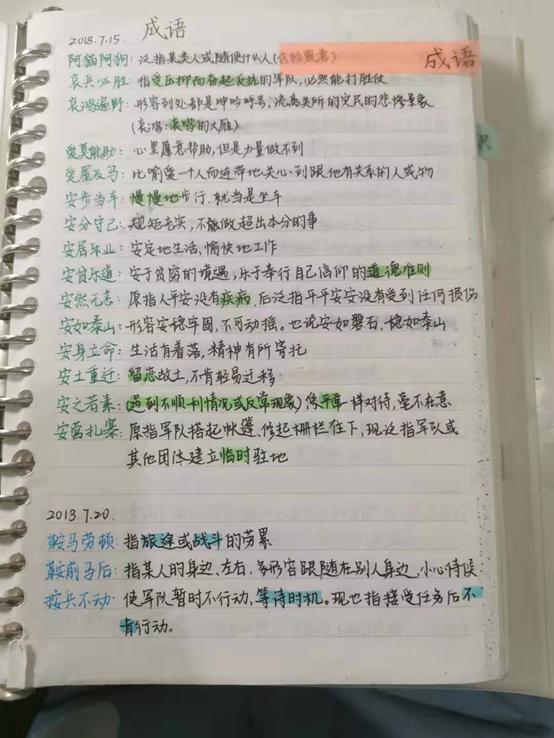 2018.7.15. 成语
成语
阿猫阿狗：泛指某类人或随便什么人(含轻蔑意)
哀兵必胜：指受压抑而奋起反抗的军队，必然能打胜仗
哀鸿遍野：形容到处都是呻吟呼号，流离失所的灾民的悲惨景象
(哀鸿：哀鸣的大雁)
爱莫能助：心里愿意帮助，但是力量做不到
爱屋及乌：比喻爱一个人而连带地关心到跟他有关系的人或物
安步当车：慢慢地步行，就当是坐车
安分守己：规矩老实，不做超出本分的事
安居乐业：安定地生活，愉快地工作
安贫乐道：安于贫穷的境遇，乐于奉行自己信仰的道德准则
安然无恙：原指人平安没有疾病，后泛指平平安安没有受到任何损伤
安如泰山：形容安稳牢固，不可动摇。也说安如磐石，稳如泰山
安身立命：生活有着落，精神有所寄托
安土重迁：留恋故土，不肯轻易迁移
安之若素：(遇到不顺利情况或反常现象)像平常一样对待，毫不在意
安营扎寨：原指军队搭起帐篷、修起栅栏住下，现泛指军队或
其他团体建立临时驻地
2013.7.20.
鞍马劳顿：指旅途或战斗的劳累
鞍前马后：指某人的身边、左右，多形容跟随在别人身边，小心侍候
按兵不动：使军队暂时不行动，等待时机。现也指接受任务后不
肯行动。